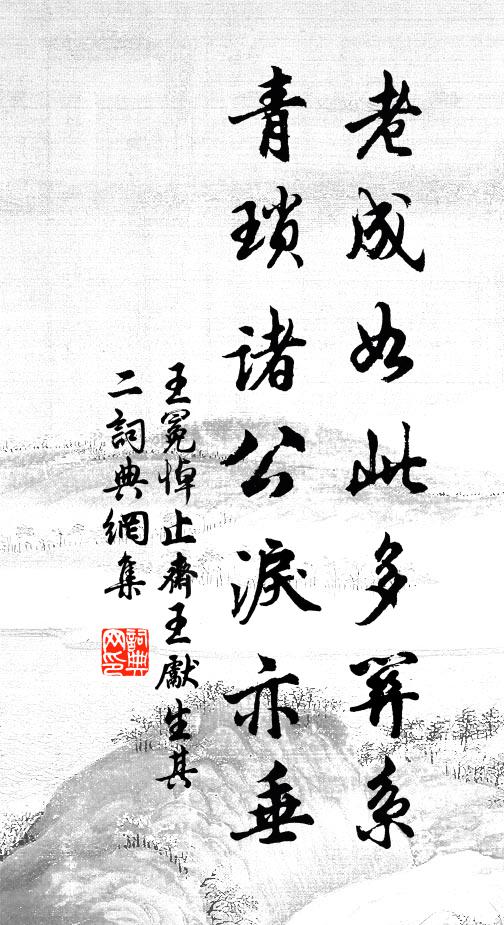 老成如此多關系
青瑣諸公淚亦垂
王冕悼止齋王獻生其
二詞典網集
詞典网印